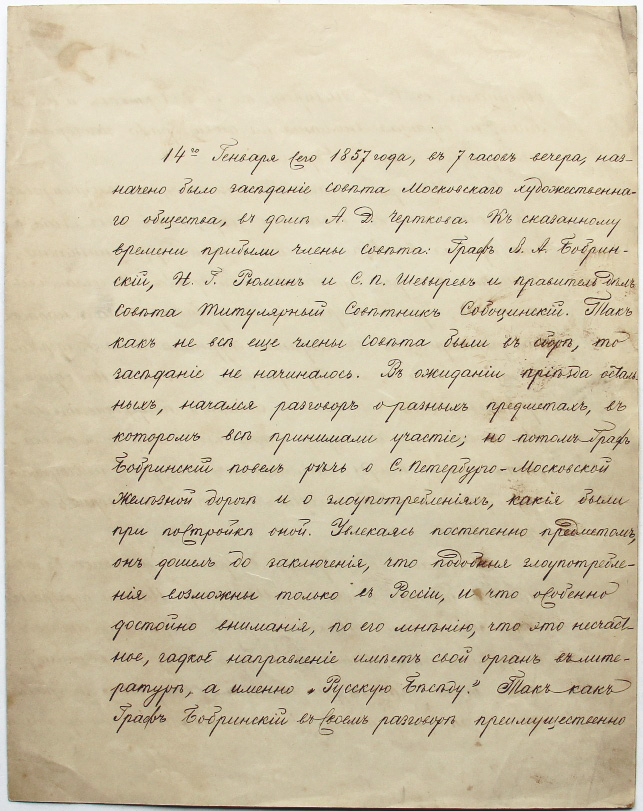 14го Генваря сего 1857 года, въ 7 часовъ вечера, наз-
начено было засѣданіе совѣта Московскаго художественна-
го общества, въ домѣ А. Д. Черткова. Къ сказанному
времени прибыли члены совѣта: Графъ А. А. Бобрин-
скій, Н. Г. Рюминъ и С. П. Шевыревъ и правитель дѣлъ
совѣта Титулярный Совѣтникъ Собоцинскій. Такъ
какъ не всѣ еще члены совѣта были въ сборѣ, то
засѣданіе не начиналось. Въ ожиданіи пріѣзда осталь
ныхъ, начался разговоръ о разныхъ предметахъ, въ
которомъ всѣ принимали участіе; но потомъ Графъ
Бобринскій повелъ рѣчь о С. Петербурго-Московской
Желѣзной дорогѣ и о злоупотребленіяхъ, какія были
при постройкѣ оной. Увлекаясь постепенно предметомъ,
онъ дошелъ до заключенія, что подобныя злоупотребле-
нія возможны только въ Россіи, и что особенно
достойно вниманія, по его мнѣнію, что это несчаст
ное, гадкое направленіе имѣетъ свой органъ въ лите-
ратурѣ, а именно „Русскую Бесѣду." Такъ какъ
Графъ Бобринскій въ своемъ разговорѣ преимущественно